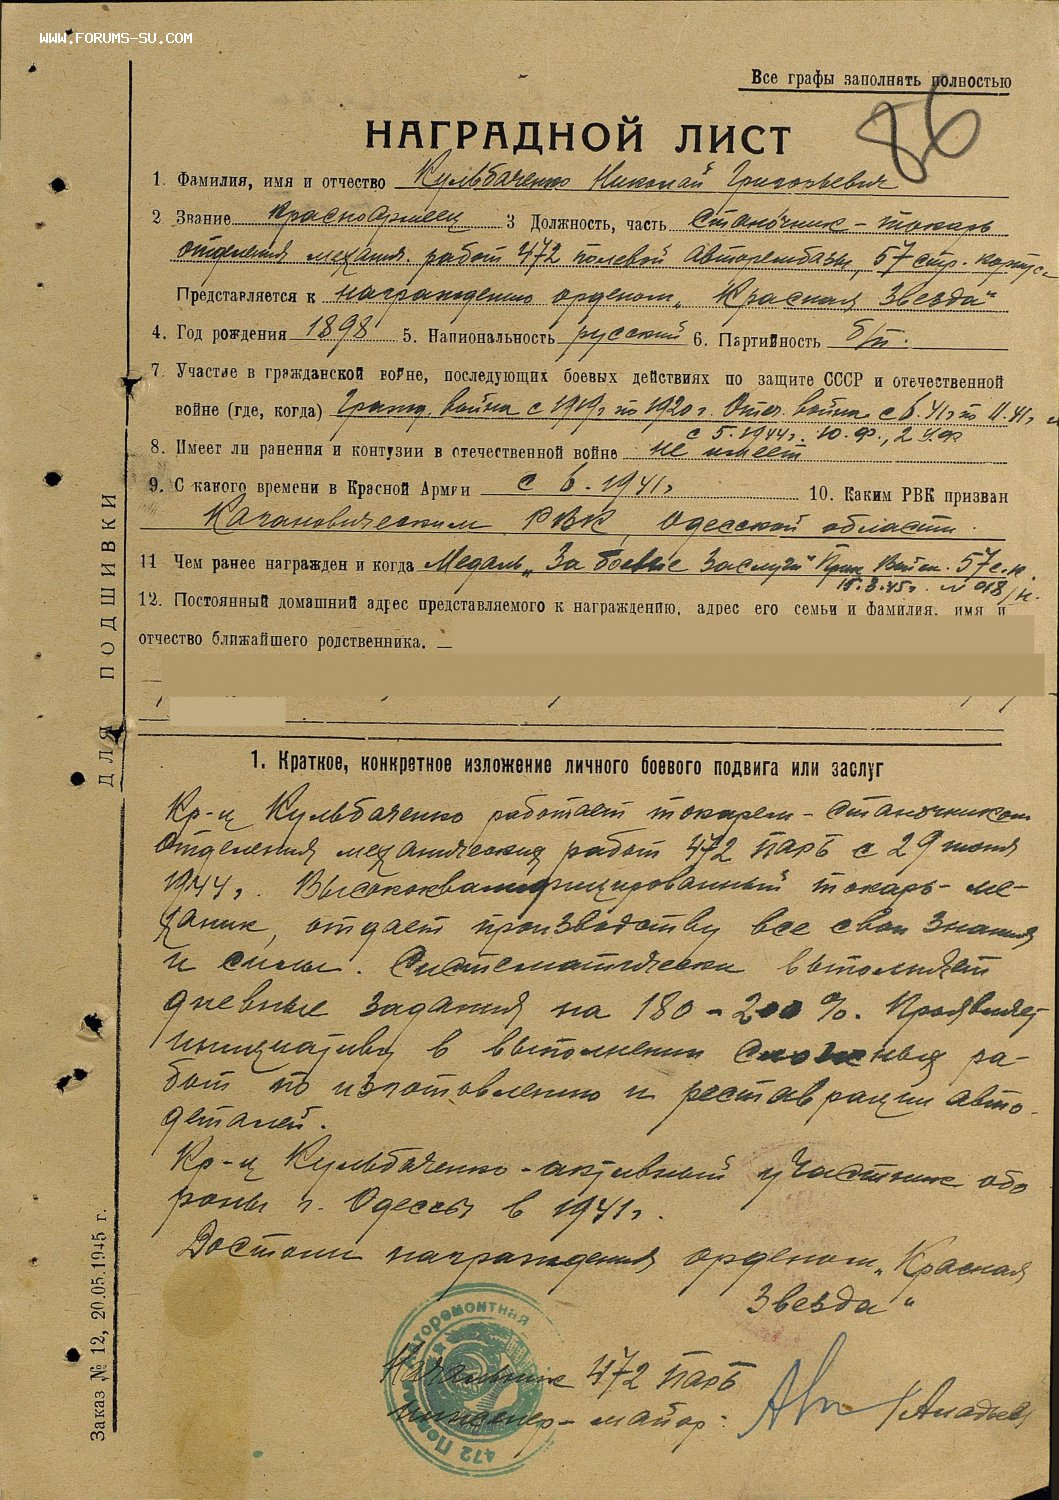 WWW.FORUMS-SU.COM
Все графы заполнять полностью
86
НАГРАДНОЙ ЛИСТ
1. Фамилия, имя и отчество Кульбаченко Николай Григорьевич
2 Звание Красноармеец 3 Должность, часть Станочник-токарь
отделения механич. работ 472 полевой авторембазы, 57 стр. корпус
Представляется к награждению орденом „Красная Звезда"
4. Год рождения 1898 5. Национальность русский 6. Партийность б/п.
7. Участие в гражданской войне, последующих боевых действиях по защите СССР и отечественной
войне (где, когда) Гражд. война с 1919г по 1920г. Отеч. война с 6.41г по 11.41г и
с 5.1944г. Ю.Ф., 2 У.Ф
8. Имеет ли ранения и контузии в отечественной войне не имеет
9. С какого времени в Красной Армии с 6.1941г 10. Каким РВК призван
Кагановическим РВК, Одесской области.
11 Чем ранее награжден и когда Медаль „За боевые заслуги" Прик. Войск. 57 с.к.
15.3.45г. № 018/н.
12. Постоянный домашний адрес представляемого к награждению, адрес его семьи и фамилия, имя и
отчество ближайшего родственника.
1. Краткое, конкретное изложение личного боевого подвига или заслуг
Кр-ц Кульбаченко работает токарем-станочником
отделения механических работ 472 ПАРБ с 29 июня
1944г. Высококвалифицированный токарь-ме-
ханик, отдает производству все свои знания
и силы. Систематически выполняет
дневные задания на 180-200%. Проявляет
инициативу в выполнении сложных ра-
бот по изготовлению и реставрации авто-
деталей.
Кр-ц Кульбаченко-активный участник обо
роны г. Одессы в 1941г.
Достоин награждения орденом „Красная
Звезда"
Начальник 472 ПАРБ
инженер-майор:
472 Полевая авторемонтная
ДЛЯ ПОДШИВКИ
Заказ № 12, 20.05.1945 г.